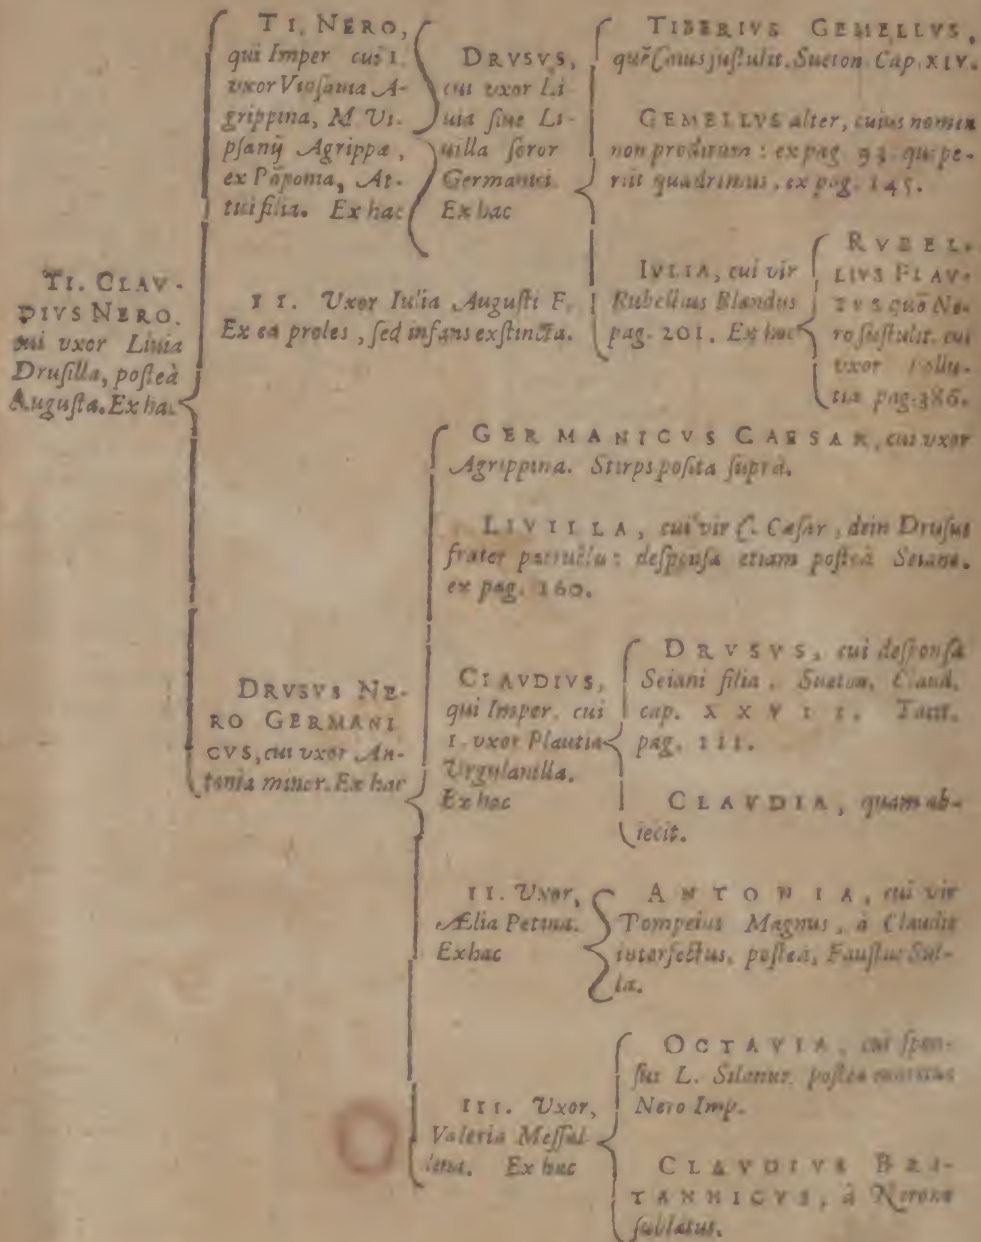 TI. CLAV-
DIVS NERO,
cui vxor Liuia
Drusilla, posteà
Augusta. Ex hac
TI. NERO,
qui Imper cui I.
vxor Vipsania A-
grippina, M Vi-
psanij Agrippæ,
ex Pōponia, At-
tici filia. Ex hac
DRVSVS,
cui vxor Li
uia siue Li-
uilla soror
Germanici.
Ex hac
TIBERIVS GEMELLVS,
quē Caius sustulit. Sueton. Cap. XIV.
GEMELLVS alter, cuius nomen
non proditum: ex pag. 93. qui pe-
riit quadrimus, ex pag. 145.
IVLIA, cui vir
Rubellius Blandus
pag. 201. Ex hac
RVBEL-
LIVS PLAV-
TVS quē Ne-
ro sustulit. cui
vxor Pollu-
tia pag. 386.
II. Uxor Iulia Augusti F.
Ex ea proles, sed infans exstincta.
DRVSVS NE-
RO GERMANI
CVS, cui vxor An-
tonia minor. Ex hac
GERMANICVS CAESAR, cui vxor
Agrippina. Stirps posita suprà.
LIVILLA, cui vir C. Cæsar, dein Drusus
frater patruelis: desponsa etiam posteà Seiano.
ex pag. 160.
CLAVDIVS,
qui Imper. cui
I. vxor Plautia
Vrgulanilla.
Ex hac
DRVSVS, cui desponsa
Seiani filia. Sueton. Claud.
cap. XXVII. Tacit.
pag. 111.
CLAVDIA, quam ab-
iecit.
II. Uxor,
Ælia Petina.
Ex hac
ANTONIA, cui vir
Pompeius Magnus, à Claudio
interfectus, posteà, Faustus Sul-
la.
III. Uxor,
Valeria Messal
lina. Ex hac
OCTAVIA, cui spon-
sus L. Silanus, posteà maritus
Nero Imp.
CLAVDIVS BRI-
TANNICVS, à Nerone
sublatus.